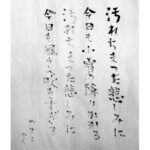 汚れちまった悲しみに
今日も小雪の降りかかる
汚れちまった悲しみに
今日も風さへ吹きすぎる